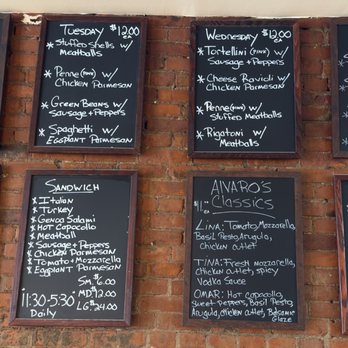 TUESDAY $12.00
* STUFFED SHELLS W/
MEATBALLS
* PENNE (PINK) W/
CHICKEN PARMESAN
* GREEN BEANS W/
SAUSAGE + PEPPERS
* SPAGHETTI W/
EGGPLANT PARMESAN
WEDNESDAY $12.00
* TORTELLINI (PINK) W/
SAUSAGE + PEPPERS
* CHEESE RAVIOLI W/
CHICKEN PARMESAN
* PENNE (PINK) W/
STUFFED MEATBALLS
* RIGATONI W/
MEATBALLS
SANDWICH
* ITALIAN
* TURKEY
* GENOA SALAMI
* HOT CAPOCOLLO
* MEATBALL
* SAUSAGE + PEPPERS
* CHICKEN PARMESAN
* TOMATO + MOZZARELLA
* EGGPLANT PARMESAN
SM. 6.00
MD. 12.00
LG. $24.00
11:30-5:30
DAILY
ALVARO'S
CLASSICS
LINA: TOMATO, MOZZARELLA,
BASIL PESTO, ARUGULA,
CHICKEN CUTLET
TINA: FRESH MOZZARELLA,
CHICKEN CUTLET, SPICY
VODKA SAUCE
OMAR: HOT CAPOCOLLO,
SWEET PEPPERS, BASIL PESTO,
ARUGULA, CHICKEN CUTLET, BALSAMIC
GLAZE